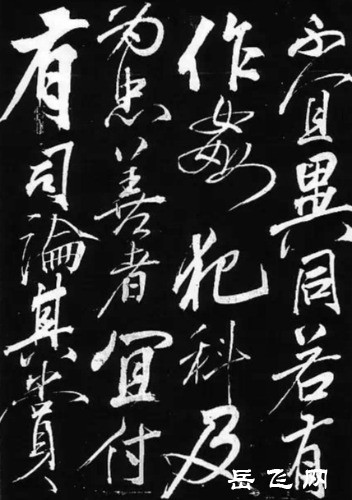 不宜異同若有
作姦犯科及
为忠善者宜付
有司論其賞
岳飞网